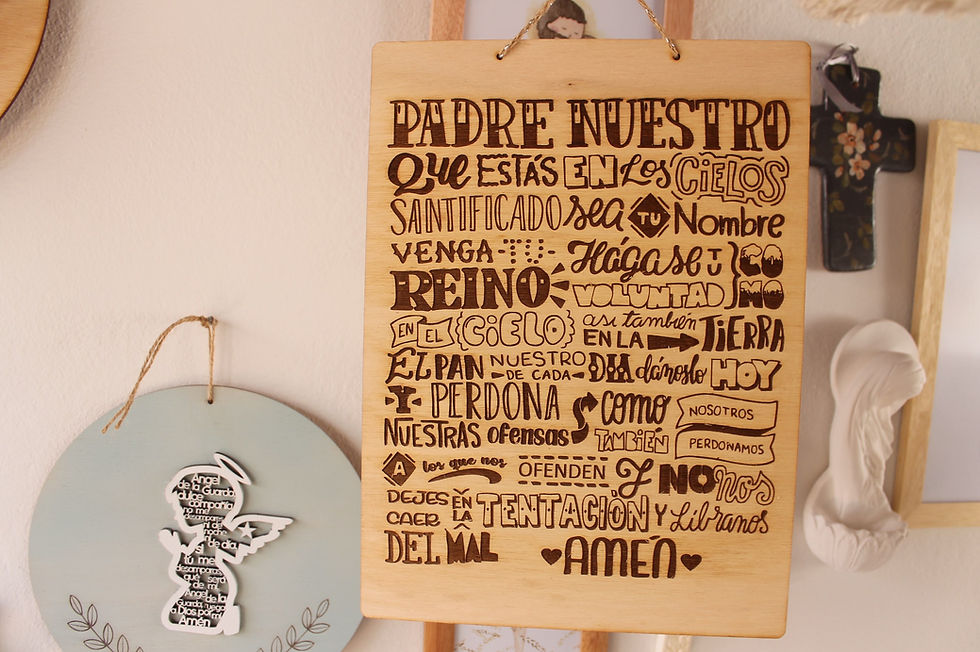 PADRE NUESTRO
Que ESTÁS EN Los CIELOS
SANTIFICADO sea TU Nombre
VENGA TU REINO
Hágase TU VOLUNTAD COMO
EN EL CIELO así también EN LA TIERRA
EL PAN NUESTRO DE CADA DIA dánoslo HOY
Y PERDONA
NUESTRAS ofensas como TAMBIÉN NOSOTROS PERDONAMOS
A los que nos OFENDEN Y NO nos
DEJES CAER EN LA TENTACIÓN Y Líbranos
DEL MAL AMÉN
Angel
de la Guarda,
dulce
compañía
no me
desampares
ni de
noche
ni de día,
si
tú me
desamparas,
que será
de mi,
Angel de la
Guarda, ruega
a Dios por mi
Amén